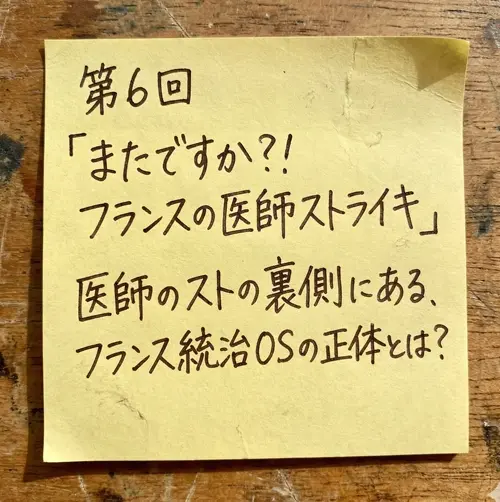 第6回
「またですか?!
フランスの医師ストライキ」
医師のストの裏側にある、
フランス統治OSの正体とは?